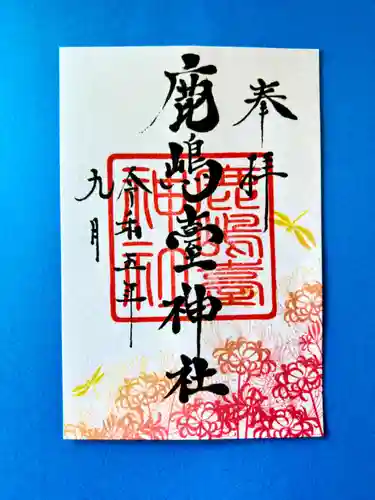 奉拝
鹿嶋臺神社
令和五年
九月
鹿嶋臺
神社